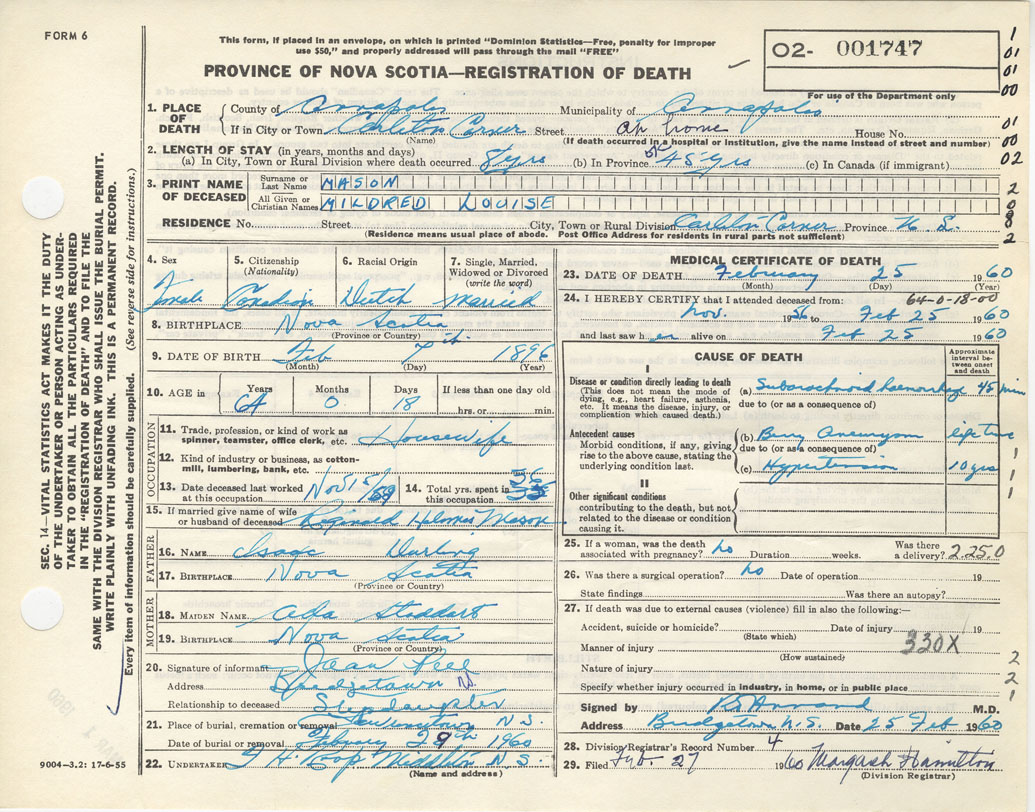 FORM 6
This form, if placed in an envelope, on which is printed "Dominion Statistics—Free, penalty for improper
use $50," and properly addressed will pass through the mail "FREE"
PROVINCE OF NOVA SCOTIA—REGISTRATION OF DEATH
02- 001747
For use of the Department only
1
01
01
00
01
00
02
2
0
8
2
1. PLACE OF DEATH { County of Annapolis Municipality of Annapolis
If in City or Town Carleton Corner Street at home House No.
(Name) (If death occurred in a hospital or institution, give the name instead of street and number)
2. LENGTH OF STAY (in years, months and days)
(a) In City, Town or Rural Division where death occurred 8 yrs (b) In Province 45 yrs (c) In Canada (if immigrant)
3. PRINT NAME OF DECEASED { Surname or Last Name MASON
All Given or Christian Names MILDRED LOUISE
RESIDENCE No. Street City, Town or Rural Division Carleton Corner Province N. S.
(Residence means usual place of abode. Post Office Address for residents in rural parts not sufficient)
4. Sex 5. Citizenship (Nationality) 6. Racial Origin 7. Single, Married, Widowed or Divorced (write the word)
Female Canadian Dutch Married
8. BIRTHPLACE Nova Scotia
(Province or Country)
9. DATE OF BIRTH Feb 7th. 1896
(Month) (Day) (Year)
10. AGE in Years Months Days If less than one day old
64 0 18 hrs. or min.
OCCUPATION
11. Trade, profession, or kind of work as
spinner, teamster, office clerk, etc. Housewife
12. Kind of industry or business, as cotton-
mill, lumbering, bank, etc.
13. Date deceased last worked
at this occupation Nov 15/59 14. Total yrs. spent in
this occupation 36
15. If married give name of wife
or husband of deceased Reginald Holmes Mason
FATHER
16. NAME Isaac Durling
17. BIRTHPLACE Nova Scotia
(Province or Country)
MOTHER
18. MAIDEN NAME Ada Stoddart
19. BIRTHPLACE Nova Scotia
(Province or Country)
20. Signature of informant Jean Peel
Address Bridgetown N.S.
Relationship to deceased Stepdaughter
21. Place of burial, cremation or removal N S.
Date of burial or removal February 29th 1960
22. UNDERTAKER Middleton N S.
(Name and address)
MEDICAL CERTIFICATE OF DEATH
23. DATE OF DEATH February 25 1960
(Month) (Day) (Year)
24. I HEREBY CERTIFY that I attended deceased from: 64-0-18-00
Nov. 1956 to Feb 25 1960
and last saw her alive on Feb 25 1960
CAUSE OF DEATH
Approximate interval between onset and death
I
Disease or condition directly leading to death
(This does not mean the mode of
dying, e.g., heart failure, asthenia,
etc. It means the disease, injury, or
complication which caused death.)
(a) Subarachnoid haemorrhage 45 min
due to (or as a consequence of)
Antecedent causes
Morbid conditions, if any, giving
rise to the above cause, stating the
underlying condition last.
(b) Berry Aneurysm life time
due to (or as a consequence of)
(c) Hypertension 10 yrs
II
Other significant conditions
contributing to the death, but not
related to the disease or condition
causing it.
1
1
1
25. If a woman, was the death
associated with pregnancy? no Duration weeks. Was there
a delivery? 225.0
26. Was there a surgical operation? no Date of operation 19
State findings Was there an autopsy?
27. If death was due to external causes (violence) fill in also the following:—
Accident, suicide or homicide? Date of injury 19
(State which)
Manner of injury 330X
(How sustained)
Nature of injury
Specify whether injury occurred in industry, in home, or in public place
2
2
1
Signed by M.D.
Address Bridgetown N.S. Date 25 Feb 1960
28. Division Registrar's Record Number 4
29. Filed Feb. 27 1960 Hamilton
(Division Registrar)
SEC. 14—VITAL STATISTICS ACT MAKES IT THE DUTY
OF THE UNDERTAKER OR PERSON ACTING AS UNDER-
TAKER TO OBTAIN ALL THE PARTICULARS REQUIRED
IN THE "REGISTRATION OF DEATH" AND TO FILE THE
SAME WITH THE DIVISION REGISTRAR WHO SHALL ISSUE THE BURIAL PERMIT.
WRITE PLAINLY WITH UNFADING INK. THIS IS A PERMANENT RECORD.
Every item of information should be carefully supplied. (See reverse side for instructions.)
9004-3,2: 17-6-55